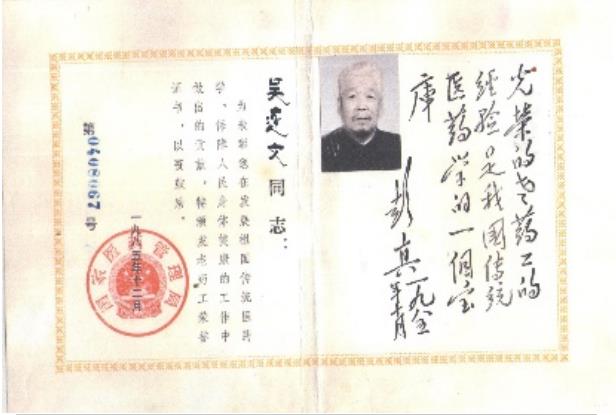 光荣的老药工的
经验是我国传统
医药学的一個宝
库
彭真一九八五年十二月
同志：
为表彰您在发染祖国传统医药
学、保障人民身体健康的工作中
做出的贡献，特颁发老药工荣誉
证书，以资鼓励。
第0408067号
一九八五年十二月
国家医药管理局